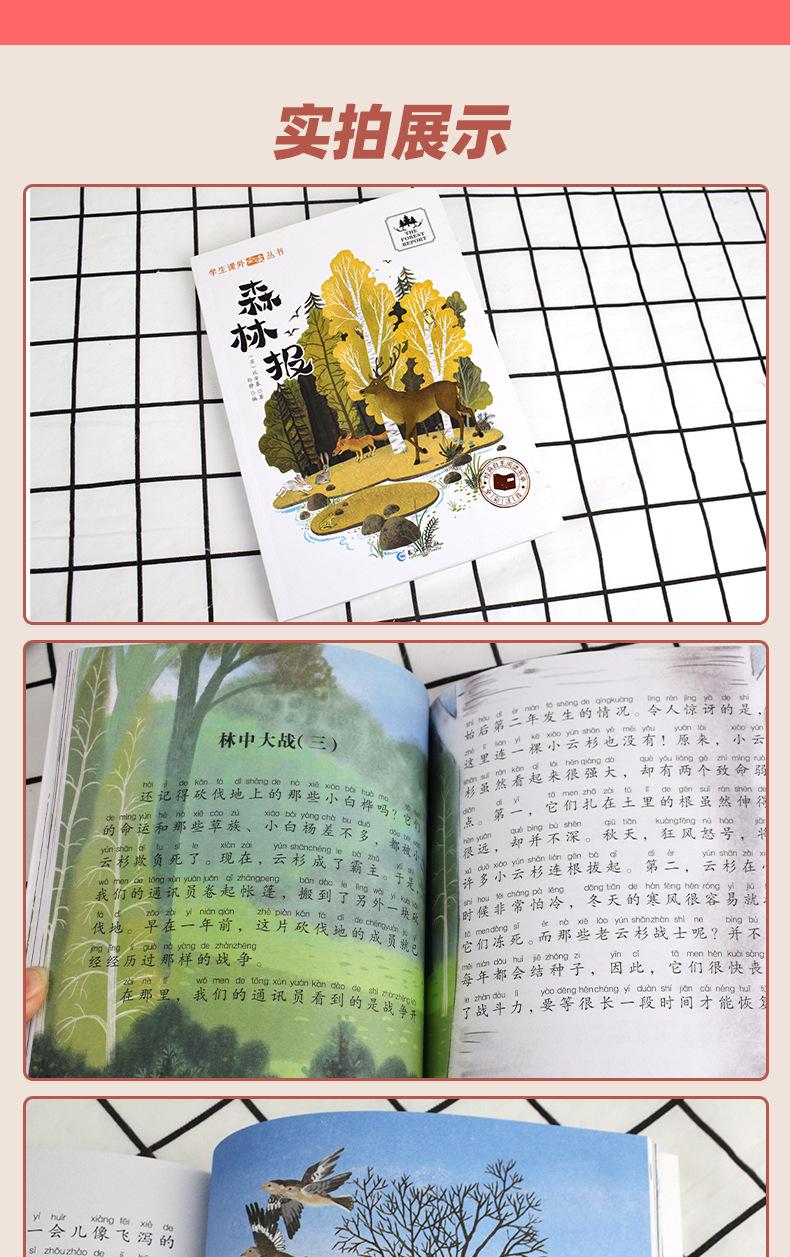 实拍展示
学生课外必读丛书
THE
FOREST
REPORT
森
林
报
林中大战(三)
hái jì de kǎn fá dì shàng de nà xiē xiǎo bái huà ma
还记得砍伐地上的那些小白桦吗？它们
de mìng yùn hé nà xiē cǎo zú xiǎo bái yáng chà bu duō
的命运和那些草族、小白杨差不多，都被小
yún shān qī fu sǐ le xiàn zài yún shān chéng le bà zhǔ
云杉欺负死了。现在，云杉成了霸主。于是
wǒ men de tōng xùn yuán juǎn qǐ zhàng peng bān dào le lìng wài yí kuài kǎn
我们的通讯员卷起帐篷，搬到了另外一块砍
fá dì zǎo zài yì nián qián zhè piàn kǎn fá dì de chéng yuán jiù
伐地。早在一年前，这片砍伐地的成员就已
jīng jīng lì guò nà yàng de zhàn zhēng
经经历过那样的战争。
zài nà lǐ wǒ men de tōng xùn yuán kàn dào de shì zhàn zhēng kāi
在那里，我们的通讯员看到的是战争开
shǐ hòu dì èr nián fā shēng de qíng kuàng lìng rén jīng yà de shì
始后第二年发生的情况。令人惊讶的是，
zhè lǐ lián yì kē xiǎo yún shān yě méi yǒu yuán lái xiǎo yún
这里连一棵小云杉也没有！原来，小云
shān suī rán kàn qǐ lái hěn qiáng dà què yǒu liǎng gè zhì mìng ruò
杉虽然看起来很强大，却有两个致命弱
diǎn dì yī tā men zhā zài tǔ lǐ de gēn suī rán shēn de
点。第一，它们扎在土里的根虽然伸得
hěn yuǎn què bìng bù shēn qiū tiān kuáng fēng nù háo jiāng
很远，却并不深。秋天，狂风怒号，将
xǔ duō xiǎo yún shān lián gēn bá qǐ dì èr yún shān zài xiǎo
许多小云杉连根拔起。第二，云杉在小
shí hou fēi cháng pà lěng dōng tiān de hán fēng hěn róng yì jiù
时候非常怕冷，冬天的寒风很容易就
tā men dòng sǐ ér nà xiē lǎo yún shān zhàn shì ne bìng bú
它们冻死。而那些老云杉战士呢？并不
měi nián dōu huì jiē zhǒng zi yīn cǐ tā men hěn kuài sàng
每年都会结种子，因此，它们很快丧
le zhàn dòu lì yào děng hěn cháng yí duàn shí jiān cái néng huī fù
了战斗力，要等很长一段时间才能恢复
yí huìr xiàng fēi xiè de
一会儿像飞泻的